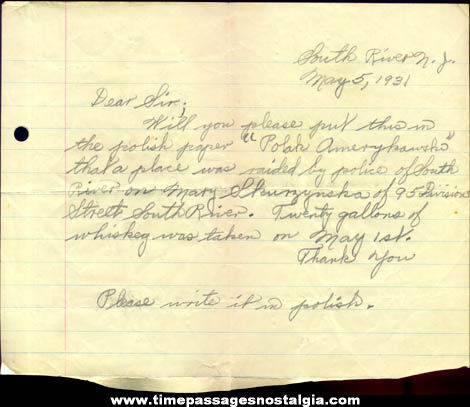 South River N. J.
May 5, 1931
Dear Sir;
Will you please put this in
the polish paper "Polak Amerykanski"
that a place was raided by police of South
River on Mary Skurzynska of 95 Division
Street South River. Twenty gallons of
whiskey was taken on May 1st.
Thank You
Please write it in polish.
www.timepassagesnostalgia.com